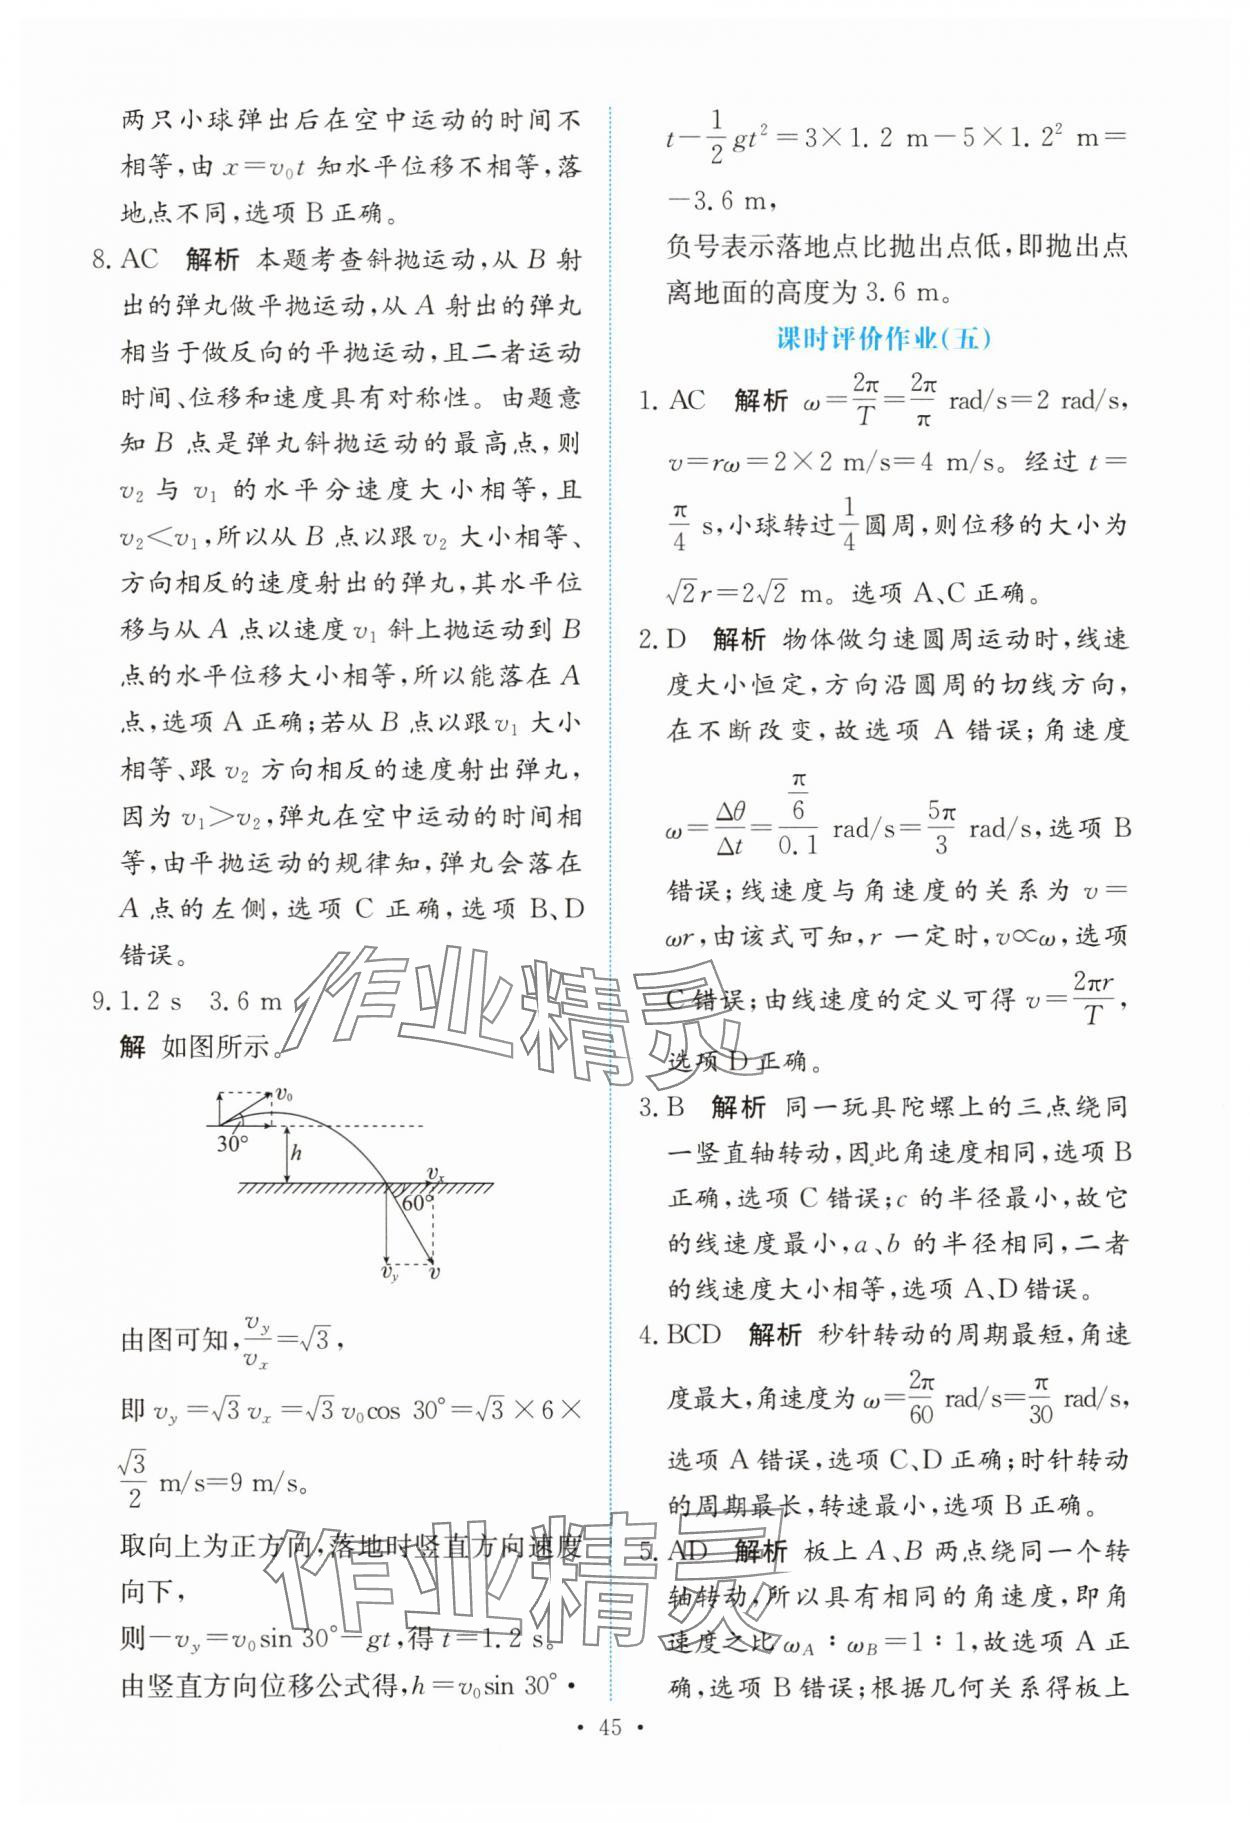 两只小球弹出后在空中运动的时间不
相等,由 x=v₀t 知水平位移不相等,落
地点不同,选项 B 正确。
8. AC 解析 本题考查斜抛运动,从 B 射
出的弹丸做平抛运动,从 A 射出的弹丸
相当于做反向的平抛运动,且二者运动
时间、位移和速度具有对称性。由题意
知 B 点是弹丸斜抛运动的最高点,则
v₂ 与 v₁ 的水平分速度大小相等,且
v₂<v₁,所以从 B 点以跟 v₂ 大小相等、
方向相反的速度射出的弹丸,其水平位
移与从 A 点以速度 v₁ 斜上抛运动到 B
点的水平位移大小相等,所以能落在 A
点,选项 A 正确;若从 B 点以跟 v₁ 大小
相等、跟 v₂ 方向相反的速度射出弹丸,
因为 v₁>v₂,弹丸在空中运动的时间相
等,由平抛运动的规律知,弹丸会落在
A 点的左侧,选项 C 正确,选项 B、D
错误。
9. 1.2 s 3.6 m
解 如图所示。
v₀
30°
h
vₓ
60°
v_y v
由图可知,v_y/vₓ=√3,
即 v_y=√3vₓ=√3v₀cos 30°=√3×6×
√3/2 m/s=9 m/s。
取向上为正方向,落地时竖直方向速度
向下,
则-v_y=v₀sin 30°-gt,得 t=1.2 s。
由竖直方向位移公式得,h=v₀sin 30°·
t-1/2gt²=3×1.2 m-5×1.2² m=
-3.6 m,
负号表示落地点比抛出点低,即抛出点
离地面的高度为 3.6 m。
课时评价作业(五)
1. AC 解析 ω=2π/T=2π/π rad/s=2 rad/s,
v=rω=2×2 m/s=4 m/s。经过 t=
π/4 s,小球转过1/4圆周,则位移的大小为
√2r=2√2 m。选项 A、C 正确。
2. D 解析 物体做匀速圆周运动时,线速
度大小恒定,方向沿圆周的切线方向,
在不断改变,故选项 A 错误;角速度
ω=Δθ/Δt=(π/6)/0.1 rad/s=5π/3 rad/s,选项 B
错误;线速度与角速度的关系为 v=
ωr,由该式可知,r 一定时,v∝ω,选项
C 错误;由线速度的定义可得 v=2πr/T,
选项 D 正确。
3. B 解析 同一玩具陀螺上的三点绕同
一竖直轴转动,因此角速度相同,选项 B
正确,选项 C 错误;c 的半径最小,故它
的线速度最小,a、b 的半径相同,二者
的线速度大小相等,选项 A、D 错误。
4. BCD 解析 秒针转动的周期最短,角速
度最大,角速度为 ω=2π/60 rad/s=π/30 rad/s,
选项 A 错误,选项 C、D 正确;时针转动
的周期最长,转速最小,选项 B 正确。
5. AD 解析 板上 A、B 两点绕同一个转
轴转动,所以具有相同的角速度,即角
速度之比 ω_A∶ω_B=1∶1,故选项 A 正
确,选项 B 错误;根据几何关系得板上
• 45 •
作业精灵
作业精灵